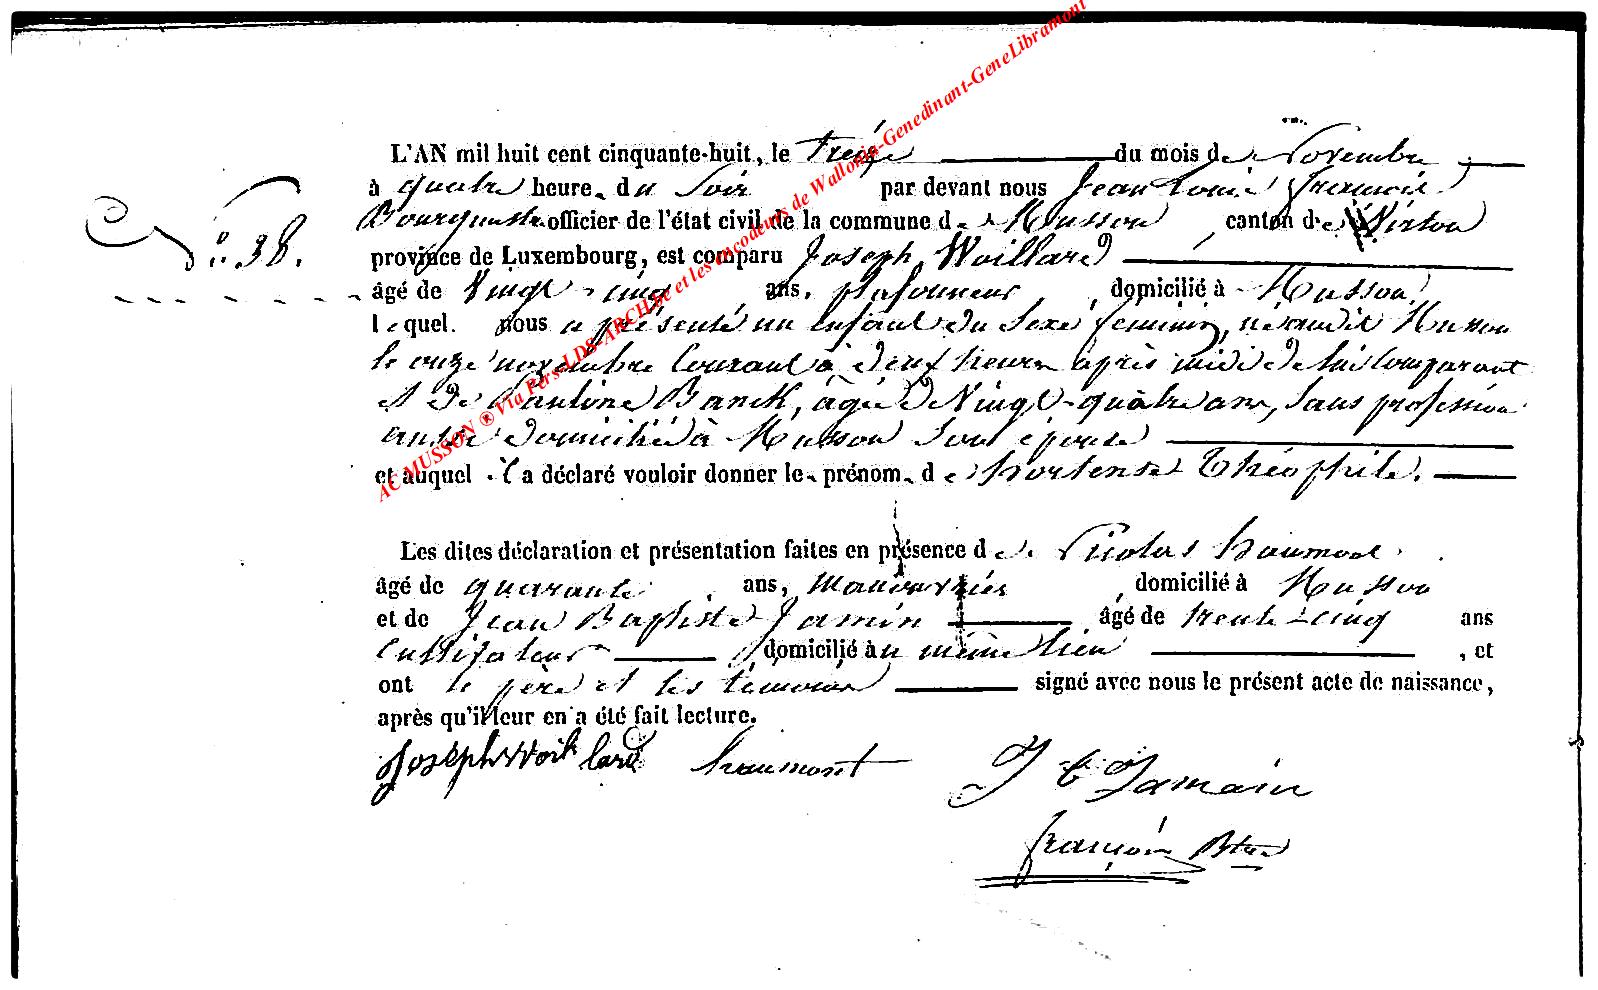 L'AN mil huit cent cinquante-huit, le treize du mois de Novembre
à quatre heure du soir par devant nous Jean Louis François
N° 38. officier de l'état civil de la commune de Musson, canton de Virton
province de Luxembourg, est comparu Joseph Woillard
âgé de Vingt-cinq ans, plafonneur, domicilié à Musson
lequel nous a présenté un enfant du sexe féminin, né audit Musson
le onze novembre courant à deux heures après midi de lui comparant
et de Pauline Banck, âgée de Vingt-quatre ans, sans profession
aussi domiciliée à Musson son épouse
et auquel il a déclaré vouloir donner le prénom de Hortense Théophile.
Les dites déclaration et présentation faites en présence de Nicolas haumont
âgé de quarante ans, manouvrier, domicilié à Musson
et de Jean Baptiste Jamin âgé de trente-cinq ans
Cultivateur domicilié au même lieu, et
ont le père et les témoins signé avec nous le présent acte de naissance,
après qu'il leur en a été fait lecture.
Joseph Woillard haumont J B Jamain
françois
AC MUSSON ® Via Pers-LDS-ARCH.be et les encodeurs de Wallonia-Genedinant-GeneLibramont